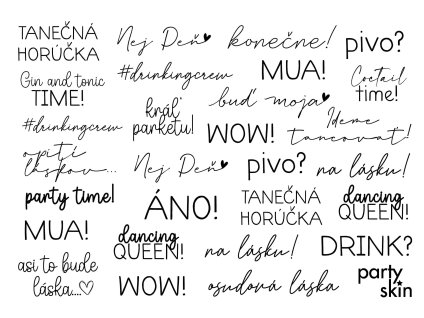 TANEČNÁ
HORÚČKA
Nej Deň
konečne!
pivo?
Gin and tonic
TIME!
#drinkingcrew
MUA!
Coctail
time!
#drinkingcrew
kráľ
parketu!
buď moja
WOW!
Ideme
tancovať!
opití
láskou...
Nej Deň
pivo?
na lásku!
party time!
ÁNO!
TANEČNÁ
HORÚČKA
dancing
QUEEN!
MUA!
dancing
QUEEN!
na lásku!
DRINK?
asi to bude
láska...
WOW!
osudová láska
party
skin